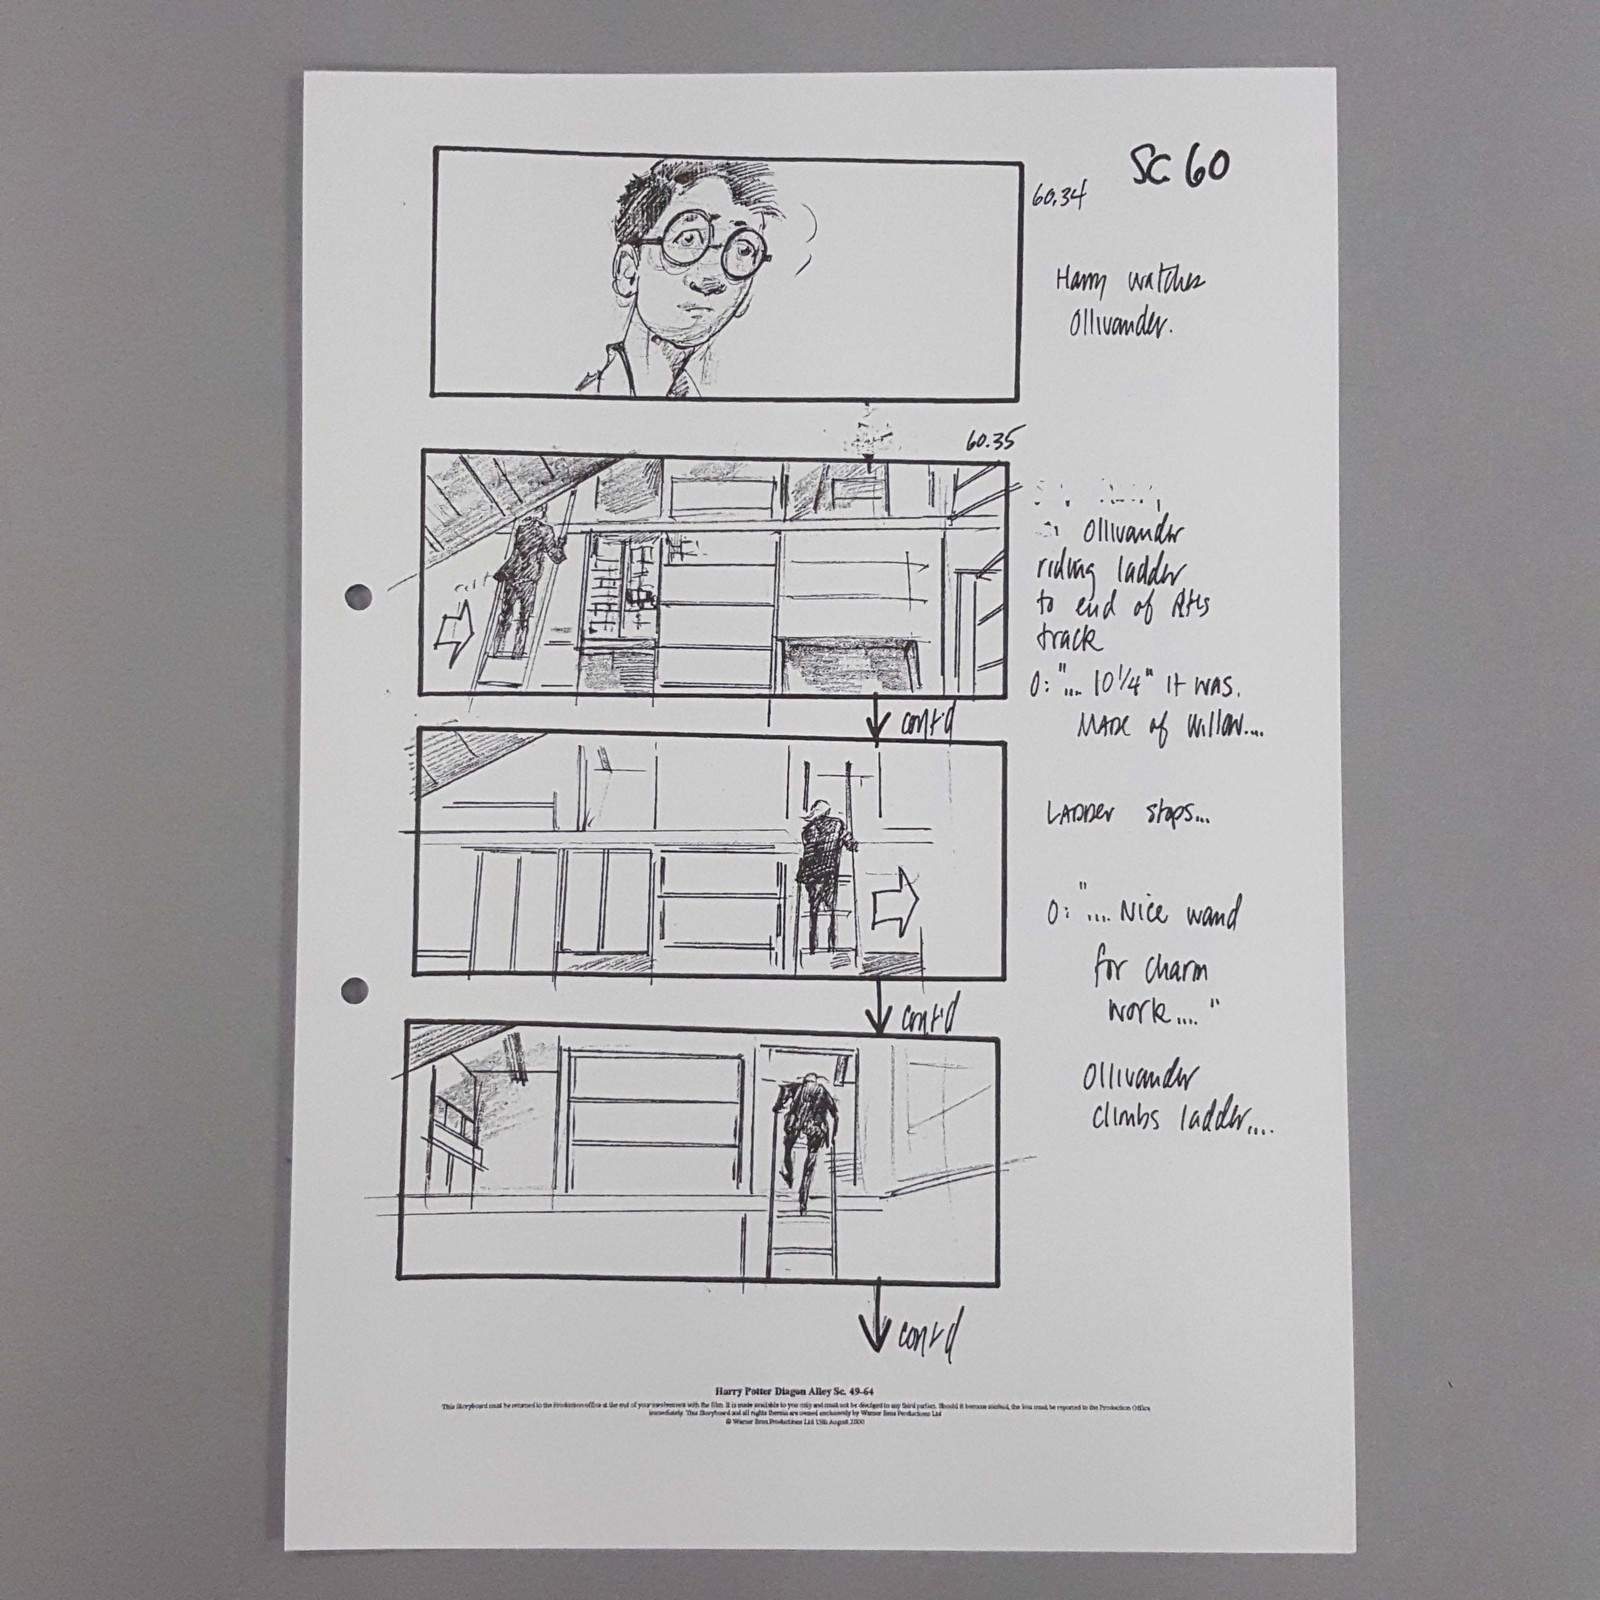 Sc 60
60.34
Harry watches
Ollivander.
60.35
Ollivander
riding ladder
to end of
track
O: "... 10 1/4" it was.
Made of willow...
cont'd
Ladder stops...
O: "... Nice wand
for charm
work...."
cont'd
Ollivander
climbs ladder....
cont'd
Harry Potter Diagon Alley Sc. 49-64
This Storyboard must be returned to the Production office at the end of your involvement with the film. It is made available to you only and must not be divulged to any third parties. Should it become mislaid, the loss must be reported to the Production Office
immediately. This Storyboard and all rights therein are owned exclusively by Warner Bros Productions Ltd
© Warner Bros Productions Ltd 15th August 2000